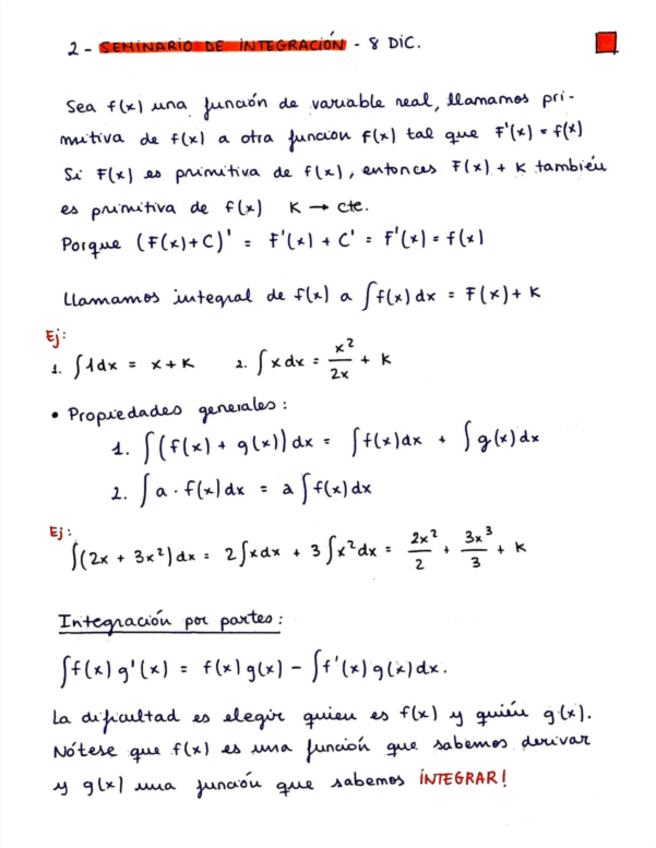 2 - SEMINARIO DE INTEGRACIÓN - 8 DIC.
Sea f(x) una función de variable real, llamamos pri-
mitiva de f(x) a otra funcion F(x) tal que F'(x) = f(x)
Si F(x) es primitiva de f(x), entonces F(x) + K también
es primitiva de f(x) K → cte.
Porque (F(x)+C)' = F'(x) + C' = F'(x) = f(x)
Llamamos integral de f(x) a ∫f(x)dx = F(x) + K
Ej:
1. ∫1dx = x + K 2. ∫xdx = x²/2x + K
• Propiedades generales:
1. ∫(f(x) + g(x))dx = ∫f(x)dx + ∫g(x)dx
2. ∫a · f(x)dx = a∫f(x)dx
Ej:
∫(2x + 3x²)dx = 2∫xdx + 3∫x²dx = 2x²/2 + 3x³/3 + K
Integración por partes:
∫f(x)g'(x) = f(x)g(x) - ∫f'(x)g(x)dx.
La dificultad es elegir quien es f(x) y quién g(x).
Nótese que f(x) es una función que sabemos derivar
y g(x) una función que sabemos INTEGRAR!